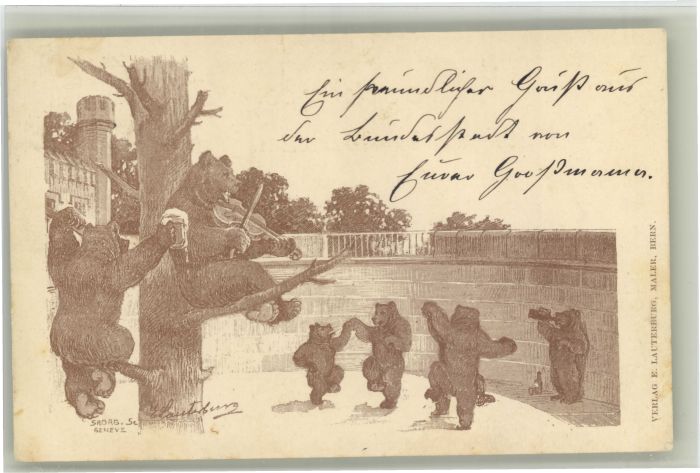 Ein freundlicher Gruß aus
der Bundesstadt von
Eurer Großmama.
VERLAG E. LAUTERBURG, MALER, BERN.
Lauterburg
SADAG. Sc
GENÈVE